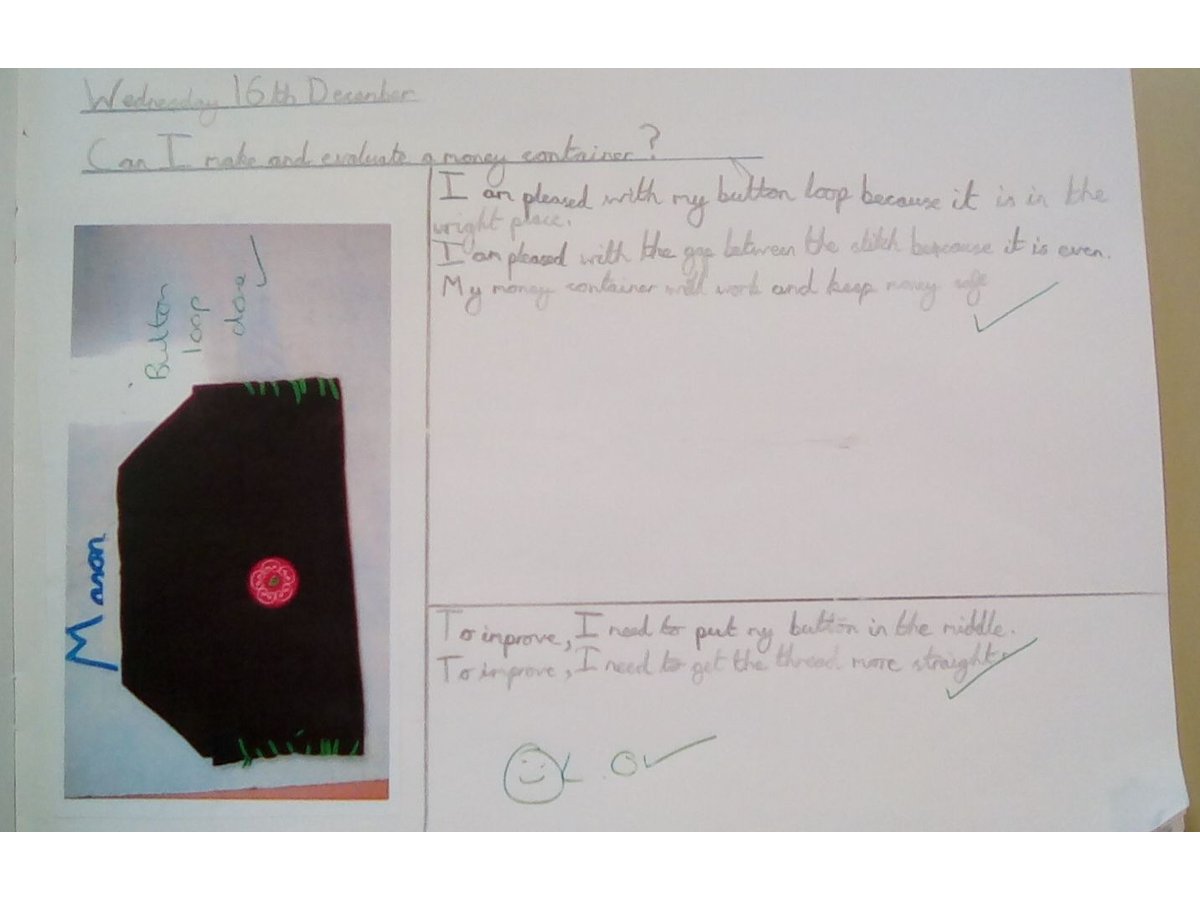 Wednesday 16th December
Can I make and evaluate a money container?
I am pleased with my button loop because it is in the
wright place.
I am pleased with the gap between the stitch because it is even.
My money container will work and keep money safe
Button
loop
done
Mason
To improve, I need to put my button in the middle.
To improve, I need to get the thread more straight.
L.O